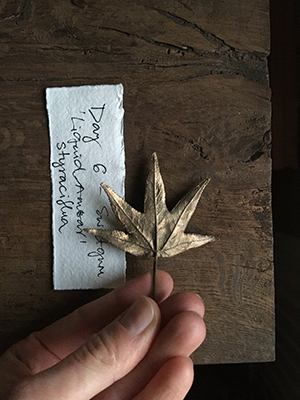 Day 6 Sweetgum
'Liquid Ambar'
Styraciflua